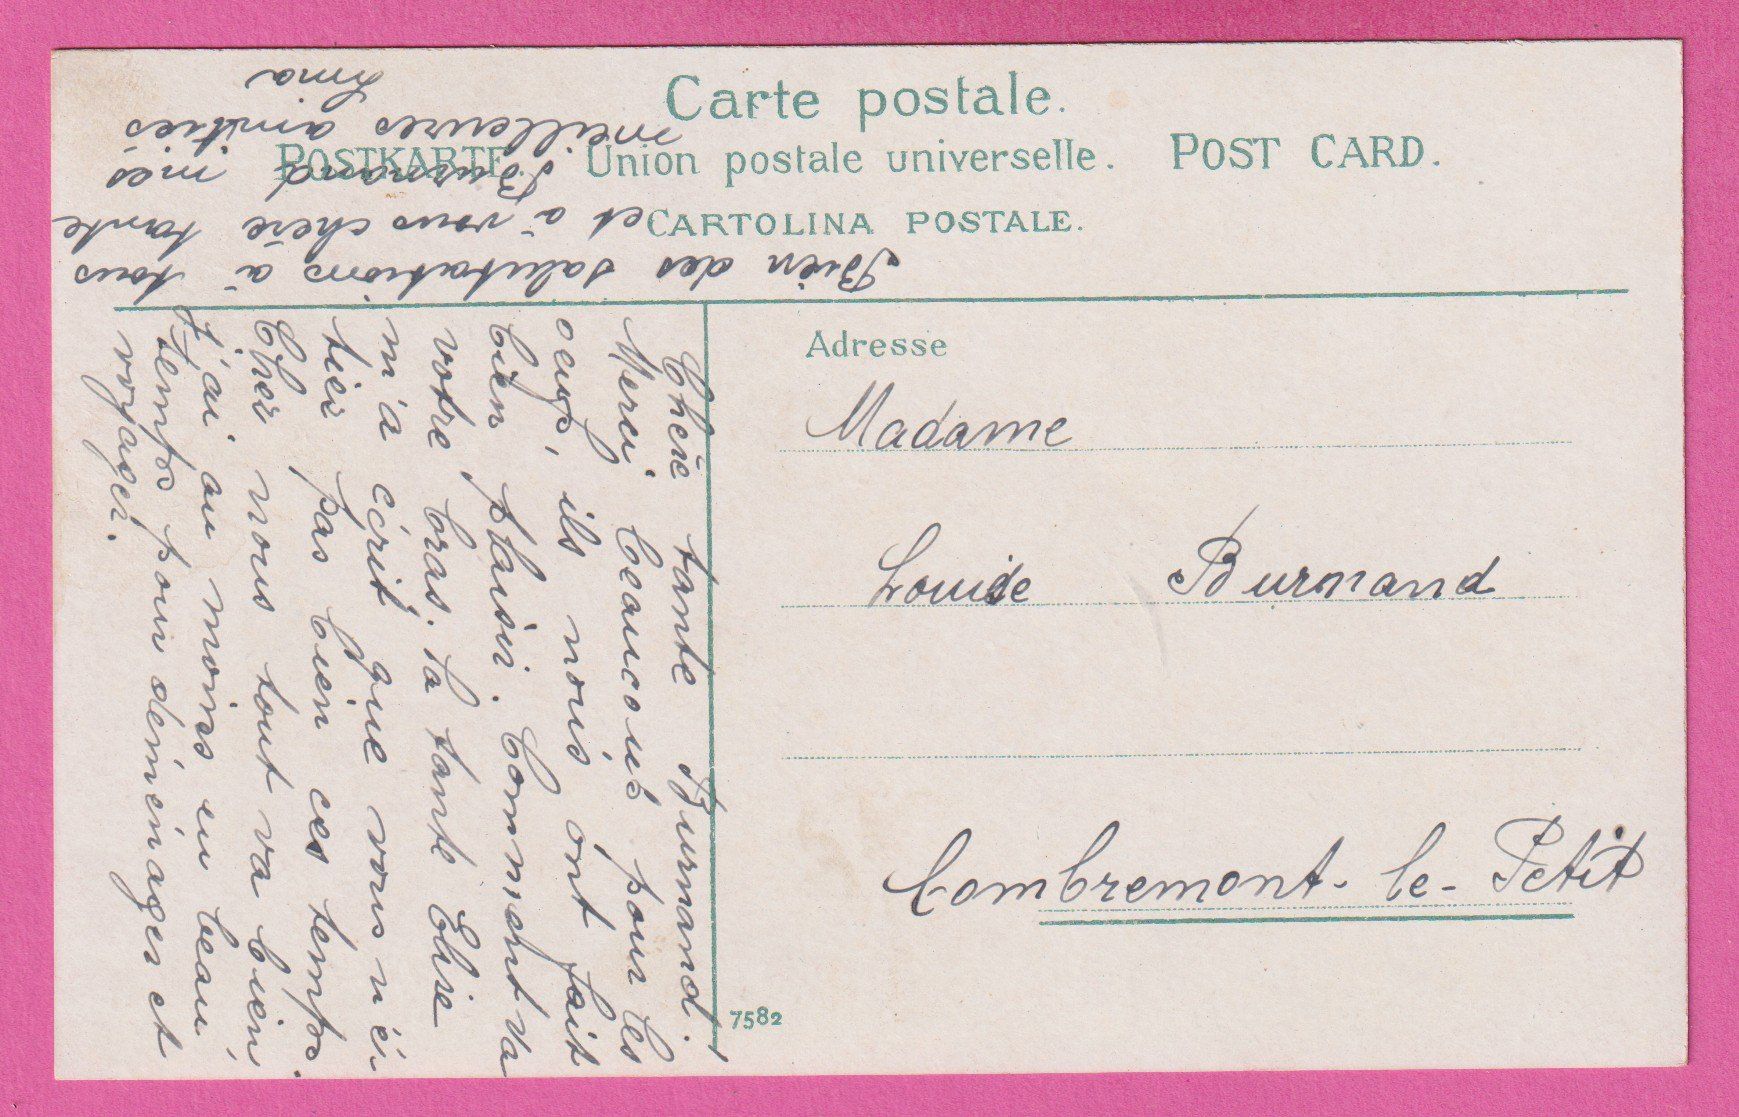 Carte postale.
POSTKARTE. Union postale universelle. POST CARD.
CARTOLINA POSTALE.
Adresse
Madame
Louise Burnand
Combremont-le-Petit
7582
Chère tante Burnand.
Merci beaucoup pour les
oeufs, ils nous ont fait
bien plaisir. Comment va
votre bras. La tante Elise
m'a écrit que vous n'é-
tiez pas bien ces temps.
Cher nous tout va bien,
j'ai au moins eu beau
temps pour déménager et
voyager.
Bien des salutations à tous
et à vous chère tante
Burnand mes
meilleures amitiés
Irma